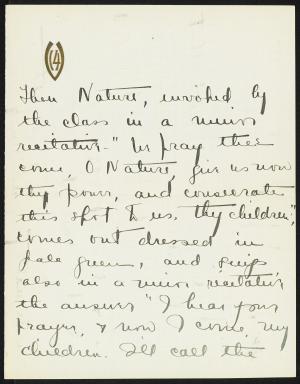 04
Then Nature, invoked by
the class in a minor
recitative - "We pray thee
come, O Nature, give us now
thy power, and consecrate
this spot to us, thy children",
comes out dressed in
pale green, and sings
also in a minor recitative
the answer "I hear your
prayer, & now I come, my
children. I'll call the